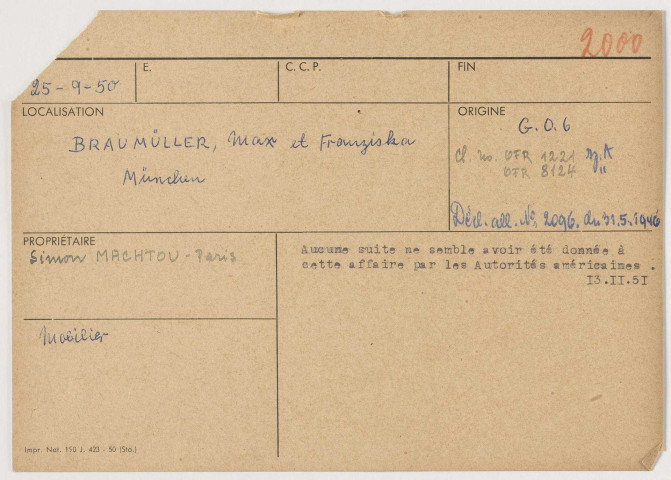 2000
25-9-50
E.
C. C. P.
FIN
LOCALISATION
BRAUMÜLLER, Max et Franziska
München
ORIGINE
G. O. 6
Cl. no. OFR 1221
OFR 8124 "
Décl. all. No. 2096. du 31.5.1946
PROPRIÉTAIRE
Simon MACHTOU - Paris
Aucune suite ne semble avoir été donnée à
cette affaire par les Autorités américaines .
I3.II.5I
Mobilier
Impr. Nat. 150 J. 423 - 50 (Sto.)